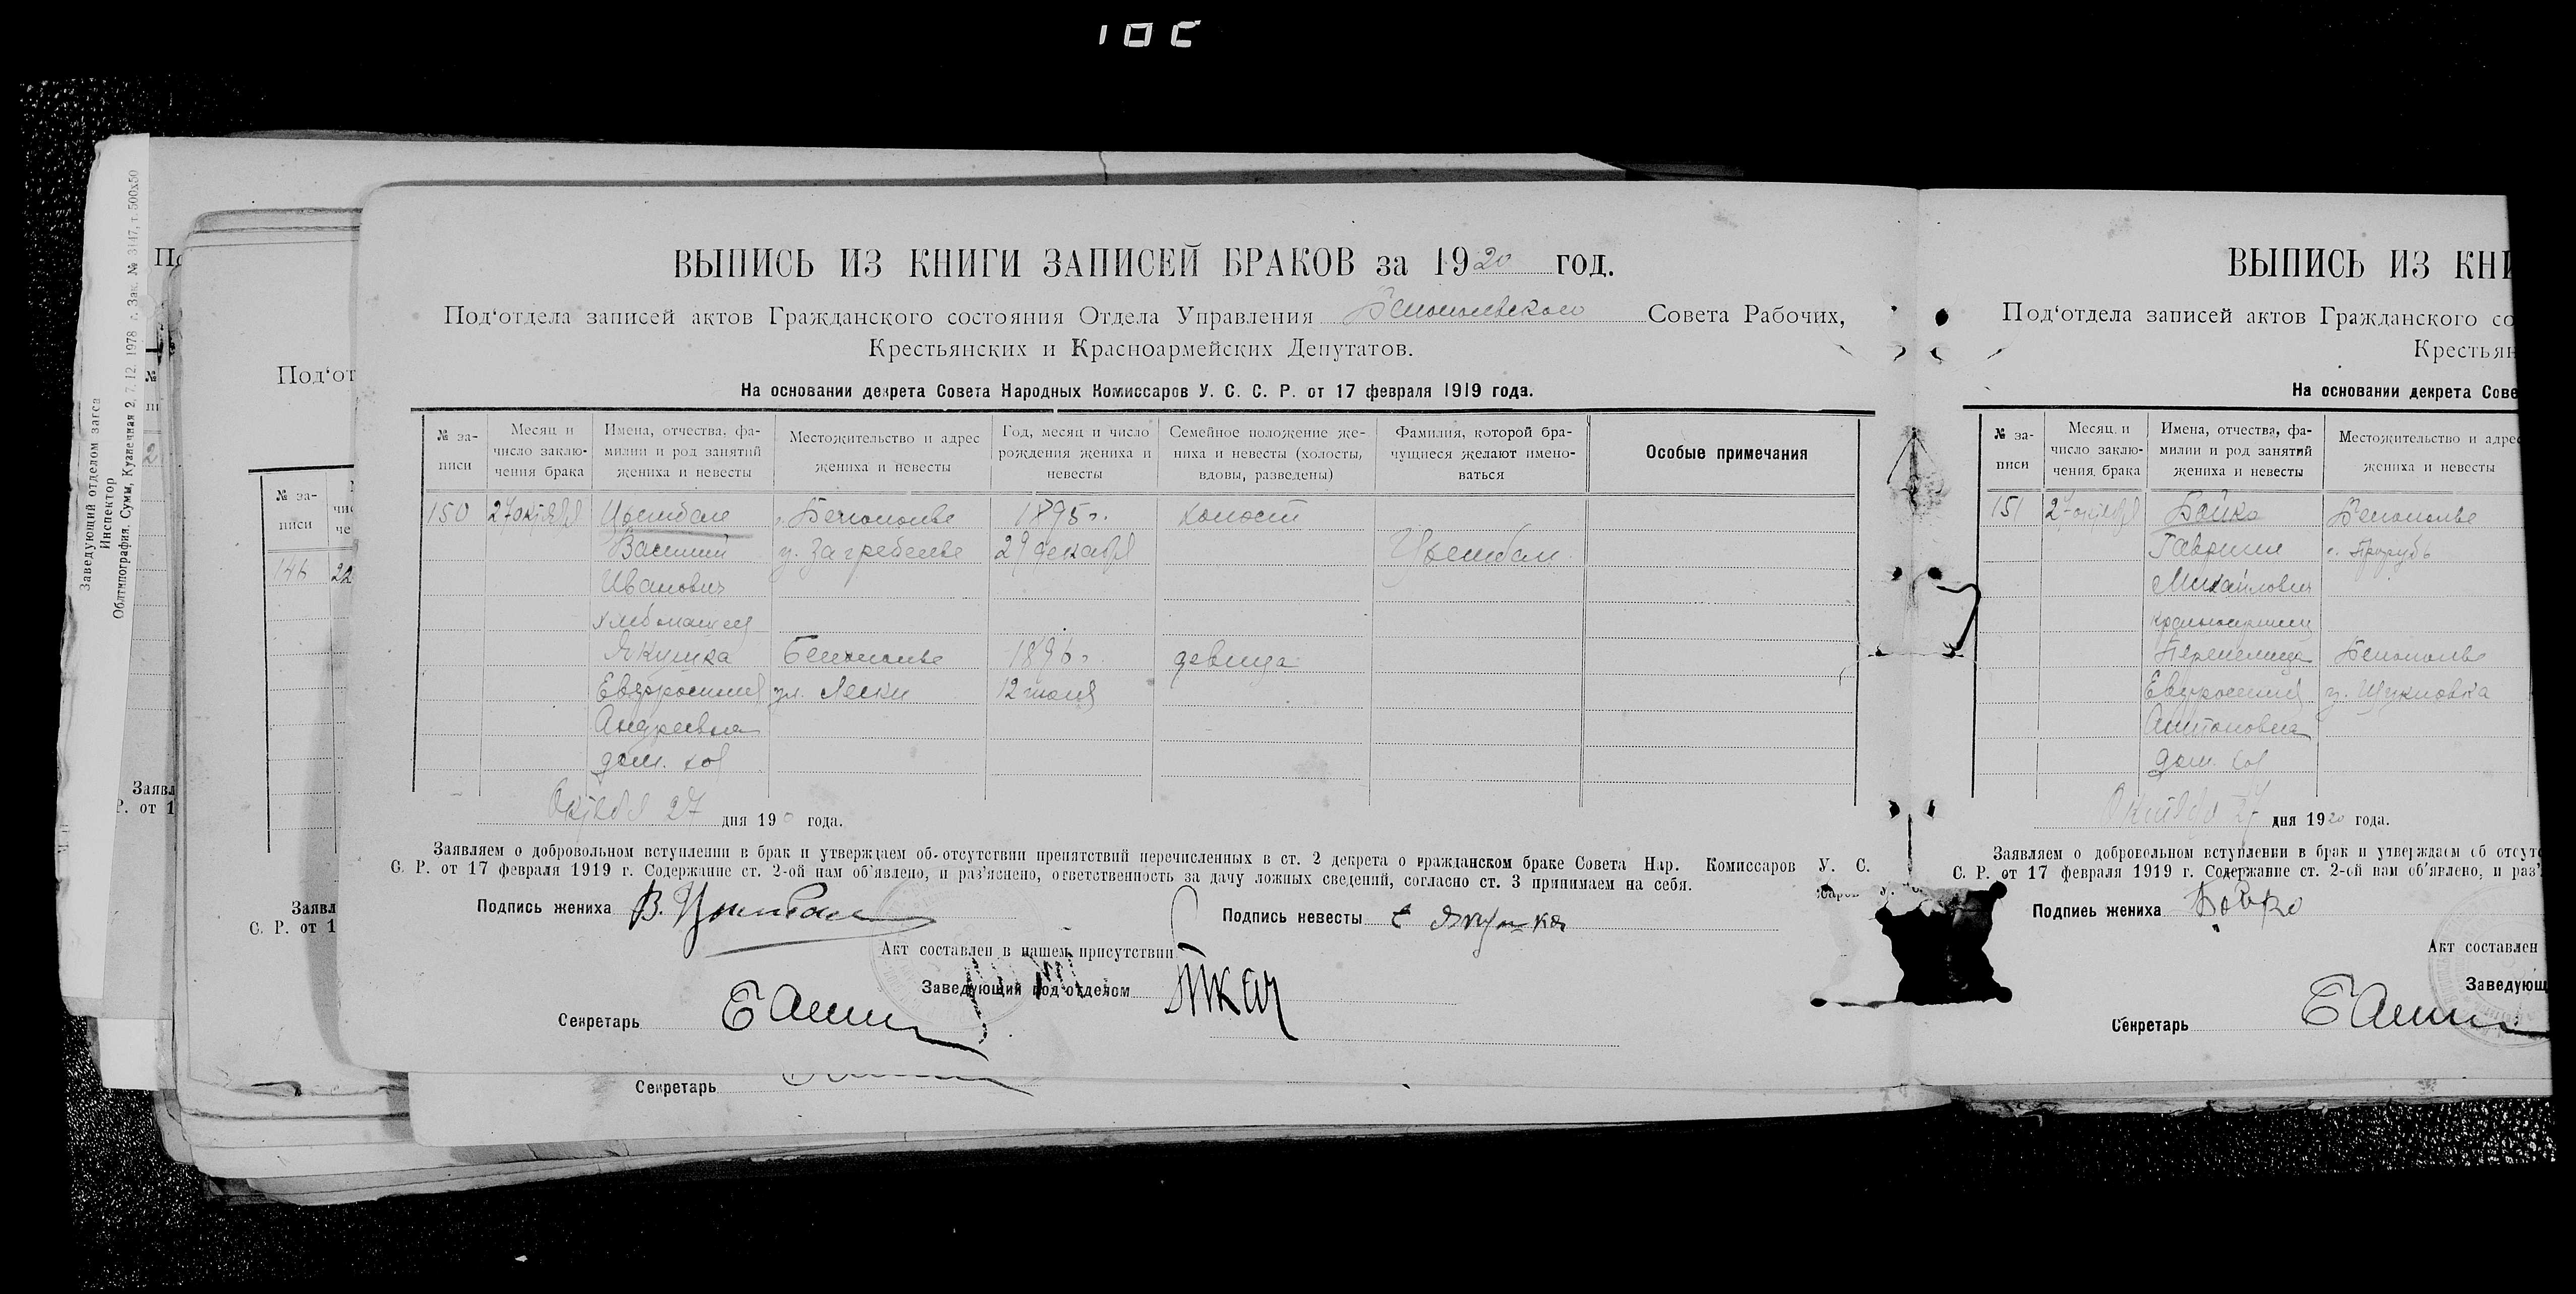 10C
Заведующий отделом загса
Инспектор
Облтипография. Сумы, Кузнечная 2. 7. 12. 1978 г. Зак. № 3147, т. 500х50
Под‘от
№ за-
писи
146 22
Заявл
Р. от 1
Заявл
С. Р. от 1
Секретарь
ВЫПИСЬ ИЗ КНИГИ ЗАПИСЕЙ БРАКОВ за 1920 год.
Под‘отдела записей актов Гражданского состояния Отдела Управления Белопольского Совета Рабочих,
Крестьянских и Красноармейских Депутатов.
На основании декрета Совета Народных Комиссаров У. С. С. Р. от 17 февраля 1919 года.
№ за-
писи
Месяц и
число заклю-
чения брака
Имена, отчества, фа-
милии и род занятий
жениха и невесты
Местожительство и адрес
жениха и невесты
Год, месяц и число
рождения жениха и
невесты
Семейное положение же-
ниха и невесты (холосты,
вдовы, разведены)
Фамилия, которой бра-
чущиеся желают имено-
ваться
Особые примечания
150 27 октября Цымбал г. Белополье 1895 г. холост
Василий у. Загребелье 29 декабря Цымбал
Иванович
хлебопашец
Якушка Белополье 1896 г. девица
Евфросиния ул. Лески
Андреевна
дом. хоз
Октября 27 дня 19 0 года.
Заявляем о добровольном вступлении в брак и утверждаем об отсутствии препятствий перечисленных в ст. 2 декрета о гражданском браке Совета Нар. Комиссаров У. С.
С. Р. от 17 февраля 1919 г. Содержание ст. 2-ой нам об‘явлено, и раз‘яснено, ответственность за дачу ложных сведений, согласно ст. 3 принимаем на себя.
Подпись жениха В. Цымбал Подпись невесты Е Якушка
Акт составлен в нашем присутствии
Заведующий под‘отделом Ткач
Секретарь
ВЫПИСЬ ИЗ КНИ
Под‘отдела записей актов Гражданского со
Крестьян
На основании декрета Сове
№ за-
писи
Месяц и
число заклю-
чения брака
Имена, отчества, фа-
милии и род занятий
жениха и невесты
Местожительство и адрес
жениха и невесты
151 27 октября Бойко Белополье
Гавриил с. Прорубь
Михайлович
красноармеец
Перепелица Белополье
Евфросиния
Антоновна
дом. хоз
Октября 27 дня 1920 года.
Заявляем о добровольном вступлении в брак и утверждаем об отсутс
С. Р. от 17 февраля 1919 г. Содержание ст. 2-ой нам об‘явлено, и раз‘
Подпись жениха Бойко
Акт составлен
Заведующ
Секретарь